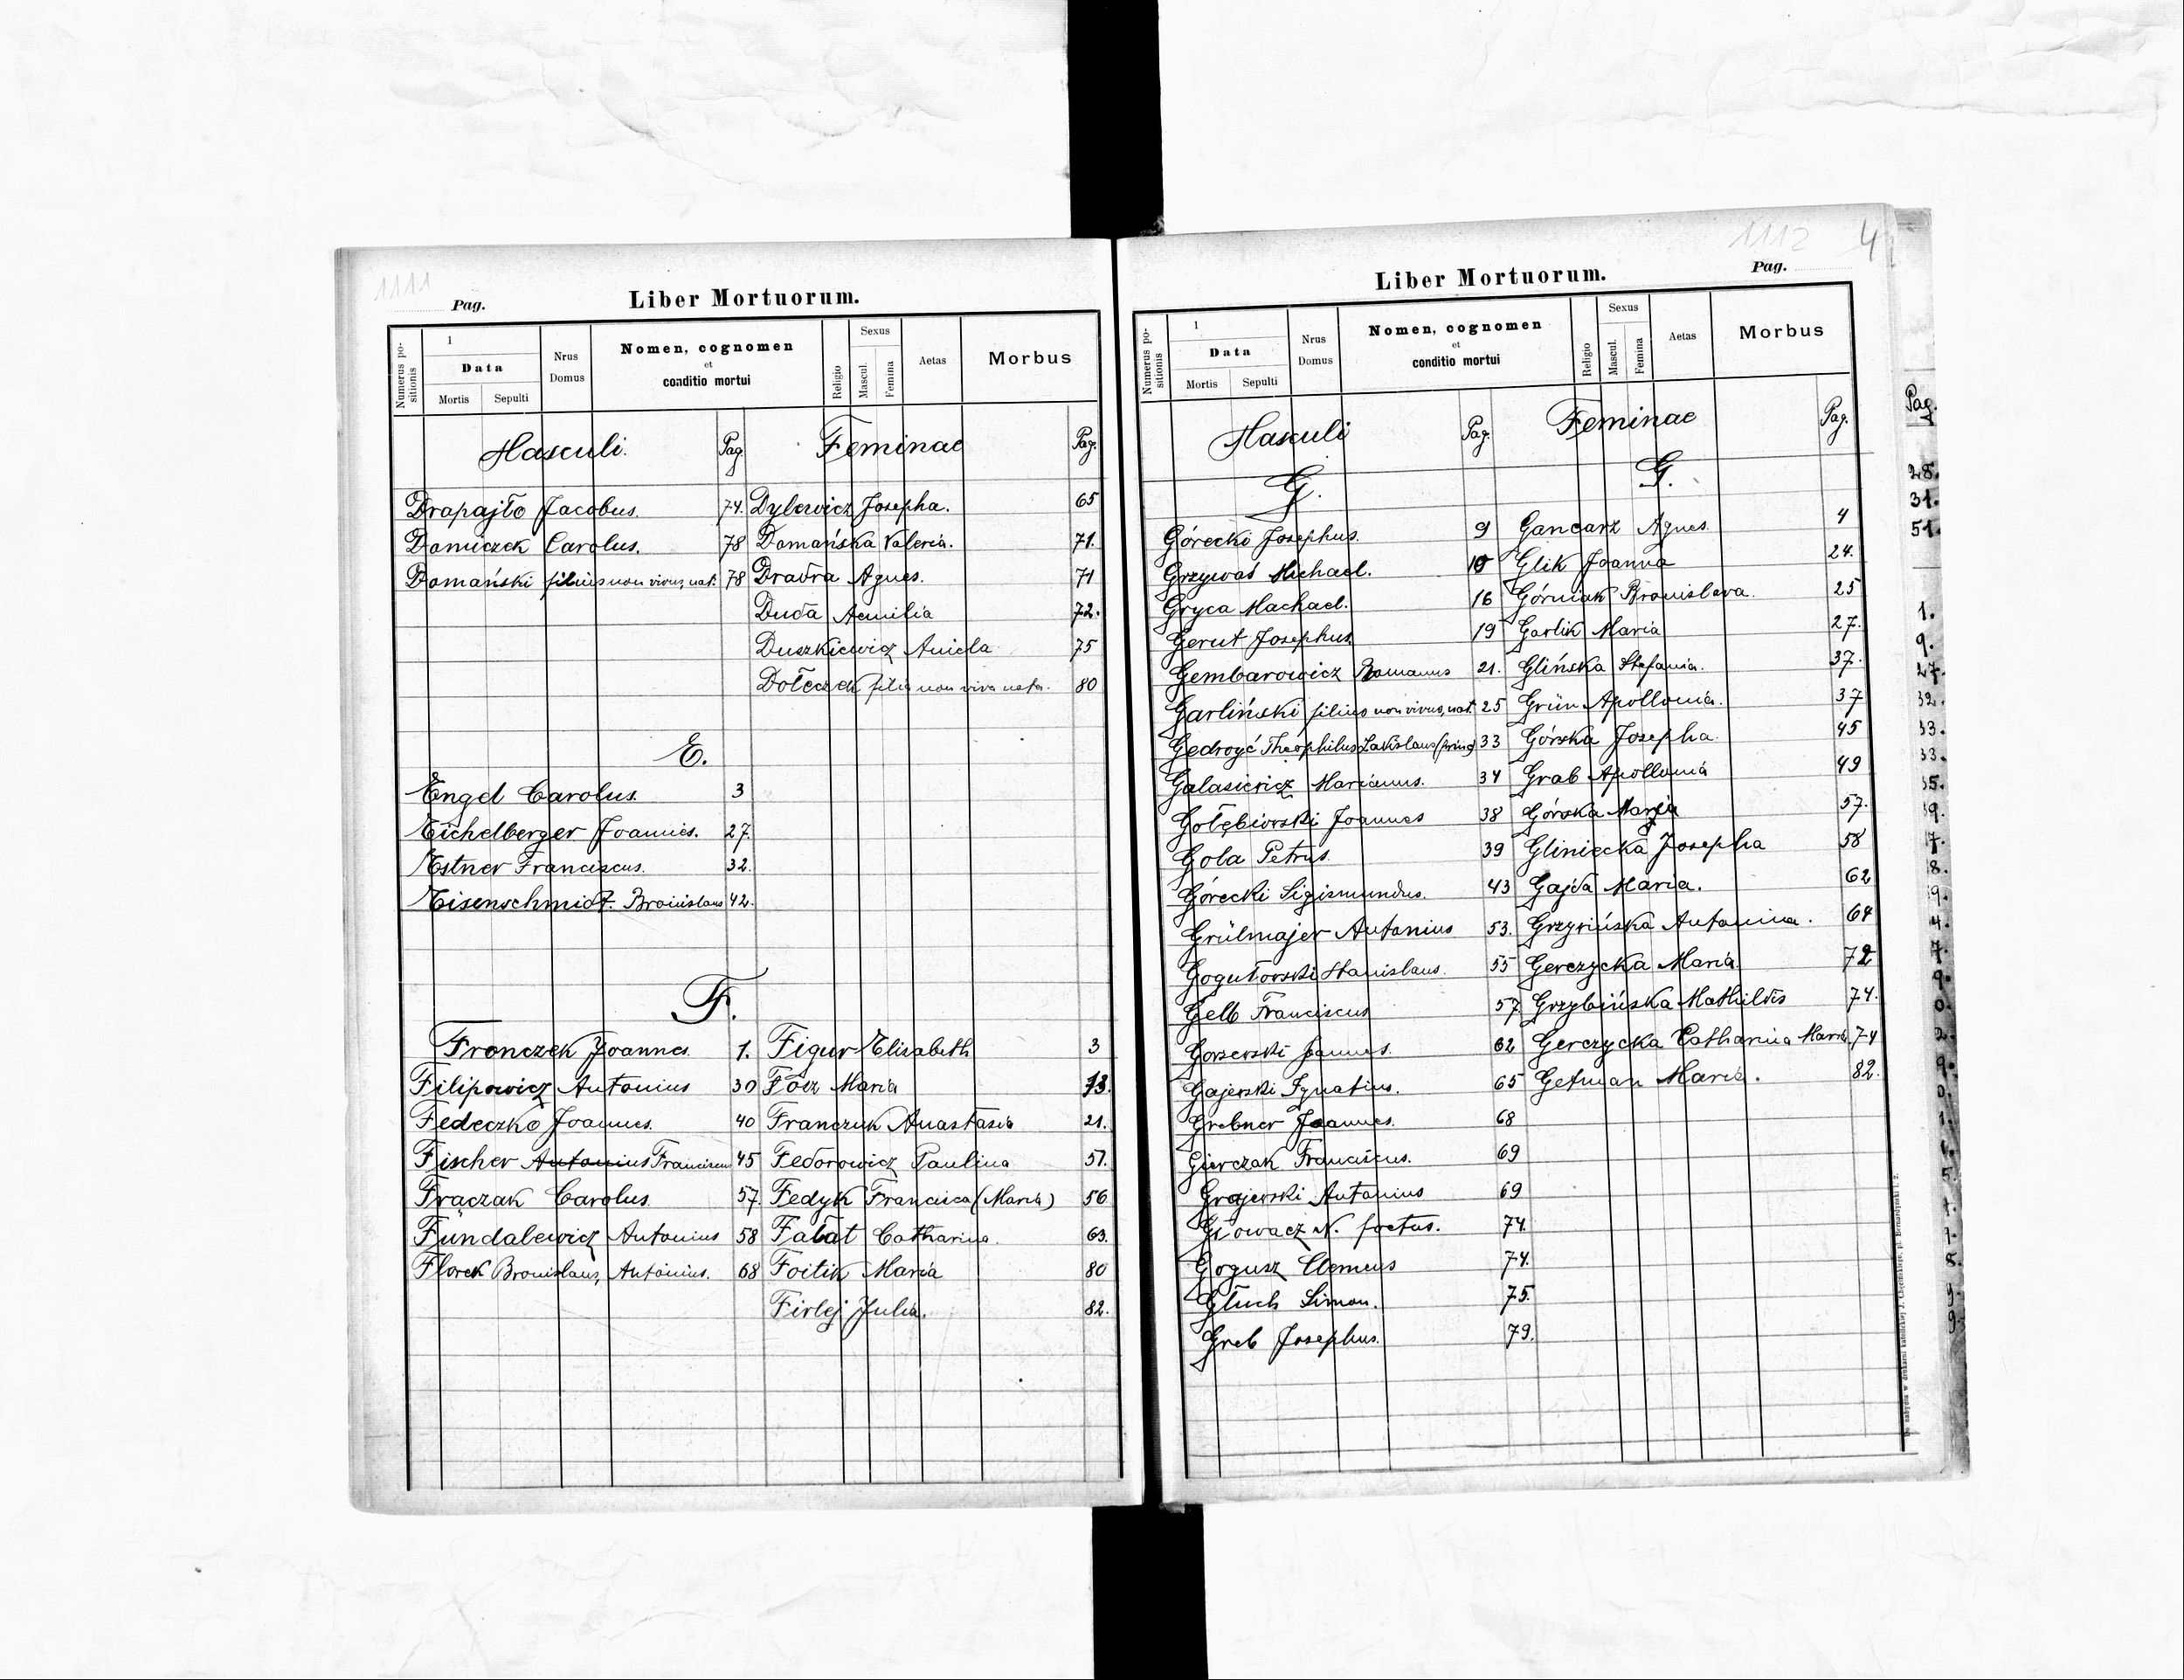 1111
Pag.
Liber Mortuorum.
Numerus positionis
1
Data
Mortis
Sepulti
Nrus Domus
Nomen, cognomen
et
conditio mortui
Religio
Sexus
Mascul.
Femina
Aetas
Morbus
Masculi. Pag Feminae Pag.
Drapajło Jacobus. 74. Dylewicz Josepha. 65
Domiczek Carolus. 78 Domańska Valeria. 71.
Domański filius non vivus, nat. 78 Dradra Agnes. 71
Duda Aemilia 72.
Duszkiewicz Aniela 75
Dołeczek filia non viva nata. 80
E.
Engel Carolus. 3
Eichelberger Joannes. 27.
Estner Franciscus. 32.
Eisenschmidt. Bronislaus 42.
F.
Fronczek Joannes. 1. Figur Elisabeth 3
Filipowicz Antonius 30 Föcz Maria 13.
Fedeczko Joannes. 40 Franczuk Anastasia 21.
Fischer Antonius Franciscus 45 Fedorowicz Paulina 51.
Frączak Carolus. 57. Fedyk Francisca (Maria) 56
Fundalewicz Antonius 58 Fałat Catharina. 63.
Florek Bronislaus, Antonius. 68 Foitik Maria 80
Firlej Julia. 82.
1112 4
Pag.
Liber Mortuorum.
Numerus positionis
1
Data
Mortis
Sepulti
Nrus Domus
Nomen, cognomen
et
conditio mortui
Religio
Sexus
Mascul.
Femina
Aetas
Morbus
Masculi Pag. Feminae Pag.
G. G.
Górecki Josephus. 9 Gancarz Agnes. 4
Grzywaś Michael. 10 Glik Joanna 24.
Gryca Machael. 16 Górniak Bronislava. 25
Gerut Josephus. 19 Garlik Maria 27.
Gembarowicz Romanus 21. Glińska Stefania. 37.
Garliński filius non vivus, nat. 25 Grün Apollonia. 37
Gedroyć Theophilus 33 Górska Josepha. 45
Galasiewicz Marianus. 34 Grab Apollonia 49
Gołębiowski Joannes 38 Górska Marja 57.
Gola Petrus. 39 Gliniecka Josepha 58
Górecki Sigismundus. 43 Gajda Maria. 62
Grülmajer Antonius 53. Antonina. 64
Stanislaus. 55 Gerczycka Maria. 72
Gelb Franciscus 57. Grzybińska Mathildis 74.
Gorzewski Joannes. 62 Gerczycka Catharina Maria 74
Gajewski Ignatius. 65 Getman Maria. 82.
Grebner Joannes. 68
Gierczak Franciscus. 69
Grajewski Antonius 69
Głowacz N. foetus. 74.
Gogusz Clemens 74.
Głuch Simon. 75.
Greb Josephus. 79.
Pag.
28.
31.
51.
1.
9.
27.